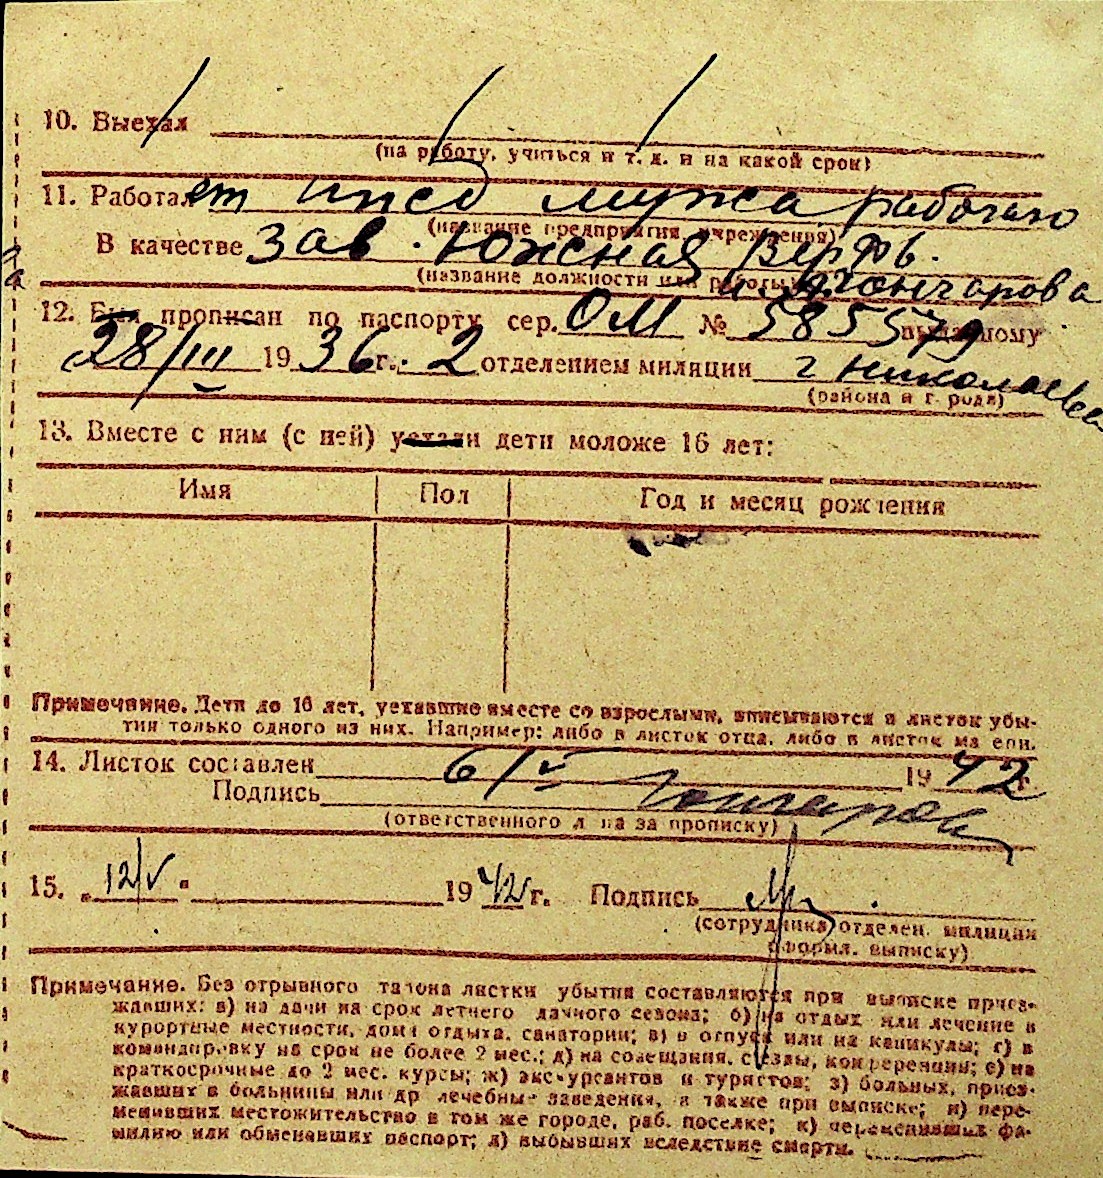 10. Выехал
(на работу, учиться и т. д. и на какой срок)
11. Работает ижд мужа рабочаю
(название предприятия, учреждения)
В качестве Зав. Южная верфь.
(название должности или работы)
Гончарова
12. Был прописан по паспорту сер. ОМ № 585579 выданному
28/III 1936 г. 2 отделением милиции г Николаева
(района и города)
13. Вместе с ним (с ней) уехали дети моложе 16 лет:
Имя Пол Год и месяц рождения
Примечание. Дети до 16 лет, уехавшие вместе со взрослыми, вписываются в листок убы-
тия только одного из них. Например: либо в листок отца, либо в листок матери.
14. Листок составлен 6/V 1942 г.
Подпись Гончаров
(ответственного лица за прописку)
15. „12/V" 1942 г. Подпись
(сотрудника отделен. милиции
оформл. выписку)
Примечание. Без отрывного талона листки убытия составляются при выписке приез-
жавших: а) на дачи на срок летнего дачного сезона; б) на отдых или лечение в
курортные местности, дома отдыха, санатории; в) в отпуск или на каникулы; г) в
командировку на срок не более 2 мес.; д) на совещания, съезды, конференции; е) на
краткосрочные до 2 мес. курсы; ж) экскурсантов и туристов; з) больных, приез-
жавших в больницы или др лечебные заведения, а также при выписке; и) пере-
менивших местожительство в том же городе, раб. поселке; к) переменивших фа-
милию или обменявших паспорт; л) выбывших вследствие смерти.